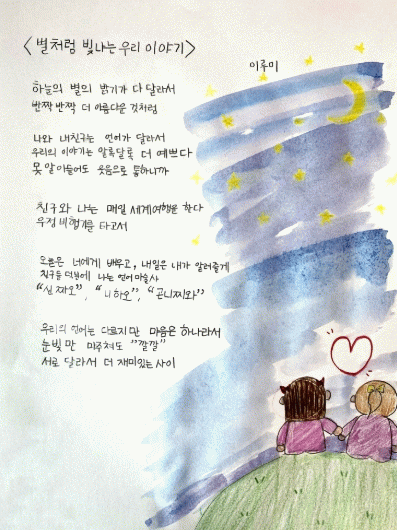 <별처럼 빛나는 우리 이야기>
이루미
하늘의 별의 밝기가 다 달라서
반짝 반짝 더 아름다운 것처럼
나와 내친구는 언어가 달라서
우리의 이야기는 알록달록 더 예쁘다
못 알아들어도 웃음으로 통하니까
친구와 나는 매일 세계여행을 한다
우정 비행기를 타고서
오늘은 너에게 배우고, 내일은 내가 알려줄게
친구들 덕분에 나는 언어마술사
"신짜오", "니하오", "곤니찌와"
우리의 언어는 다르지만 마음은 하나라서
눈빛만 마주쳐도 "깔깔"
서로 달라서 더 재미있는 사이